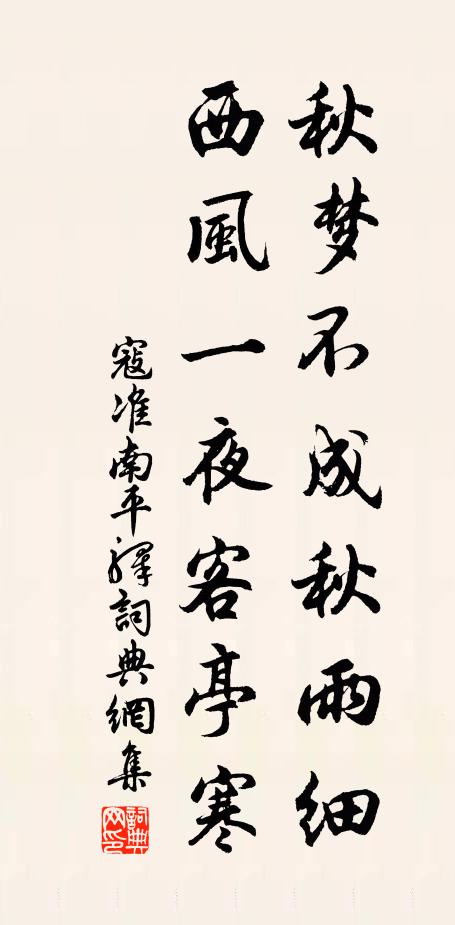 秋梦不成秋雨细
西風一夜客亭寒
寇准南平驛詞典網集
詞典网印